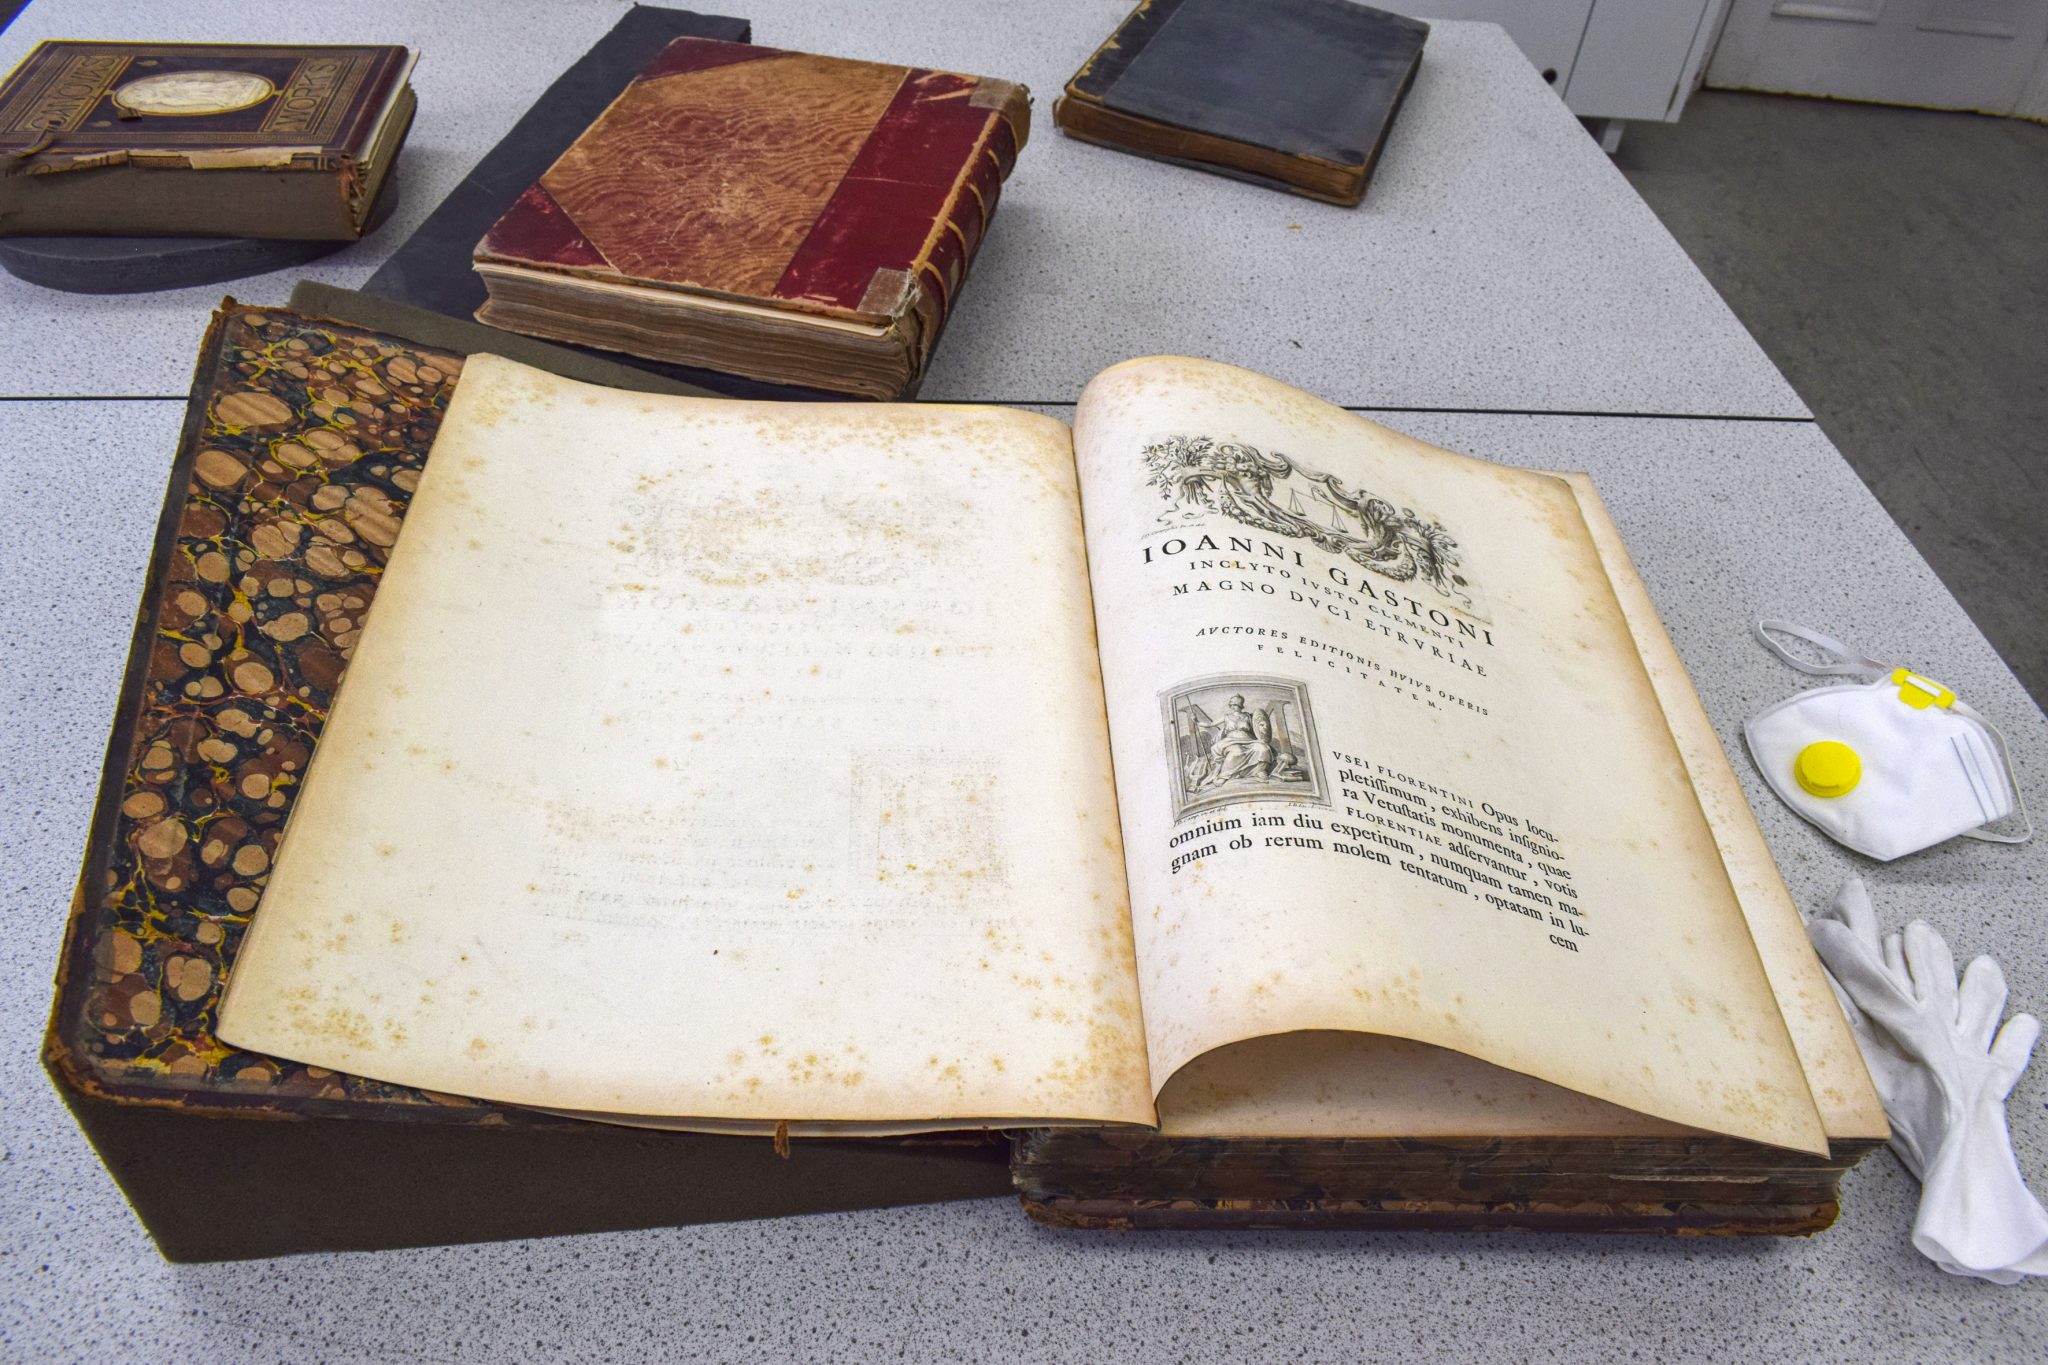 CANOVA'S
WORKS
IOANNI GASTONI
INCLYTO IVSTO CLEMENTI
MAGNO DVCI ETRVRIAE
AVCTORES EDITIONIS HVIVS OPERIS
FELICITATEM.
VSEI FLORENTINI Opus locu-
pletiſſimum, exhibens inſignio-
ra Vetuſtatis monumenta, quae
FLORENTIAE adſervantur, votis
omnium iam diu expetitum, numquam tamen ma-
gnam ob rerum molem tentatum, optatam in lu-
cem